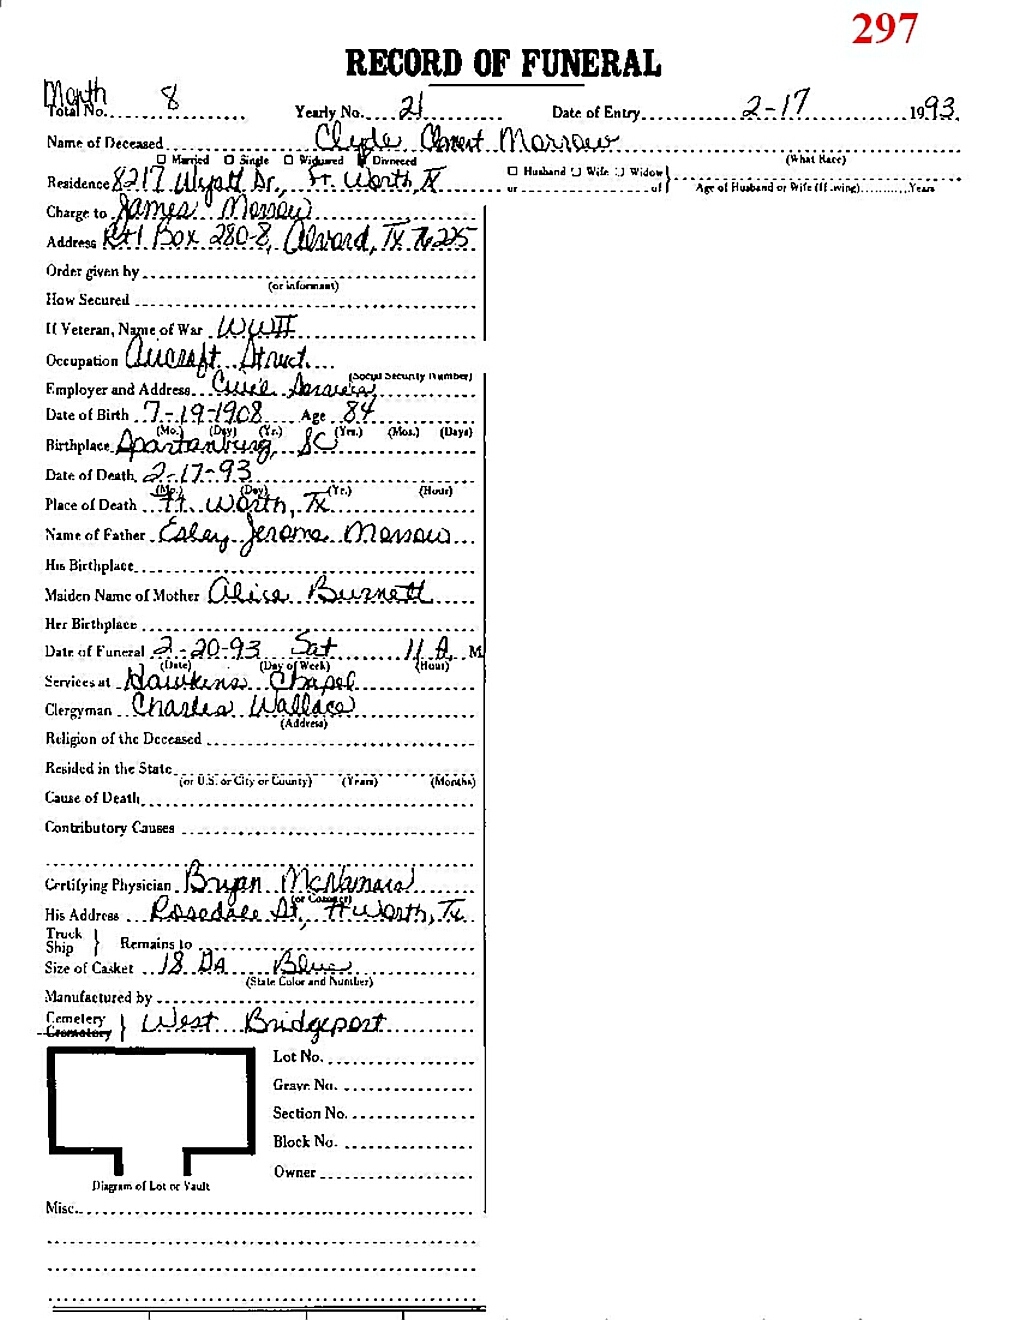 297
RECORD OF FUNERAL
Month 8
Total No. Yearly No. 21 Date of Entry 2-17 1993
Name of Deceased Clyde Clement Morrow
☐ Married ☐ Single ☐ Widowed Divorced (What Race)
Residence 8217 Wyatt Dr., Ft. Worth, TX ☐ Husband ☐ Wife ☐ Widow
or of Age of Husband or Wife (If living) Years
Charge to James Morrow
Address Rt 1 Box 280-8, Alvord, TX 76225
Order given by
(or informant)
How Secured
If Veteran, Name of War WWII
Occupation Aircraft Struct.
(Social Security Number)
Employer and Address Civil Service
Date of Birth 7-19-1908 Age 84
(Mo.) (Day) (Yr.) (Yrs.) (Mos.) (Days)
Birthplace Spartanburg, SC
Date of Death 2-17-93
(Mo.) (Day) (Yr.) (Hour)
Place of Death Ft. Worth, Tx
Name of Father Esley Jerome Morrow
His Birthplace
Maiden Name of Mother Alice Burnett
Her Birthplace
Date of Funeral 2-20-93 Sat 11 A. M
(Date) (Day of Week) (Hour)
Services at Hawkins Chapel
Clergyman Charles Wallace
(Address)
Religion of the Deceased
Resided in the State
(or U.S. or City or County) (Years) (Months)
Cause of Death
Contributory Causes
Certifying Physician Bryan McNamara
(or Coroner)
His Address Rosedale St, Ft Worth, Tx
Truck
Ship } Remains to
Size of Casket 18 Ga Blue
(State Color and Number)
Manufactured by
Cemetery
Crematory } West Bridgeport
Lot No.
Grave No.
Section No.
Block No.
Owner
Diagram of Lot or Vault
Misc.